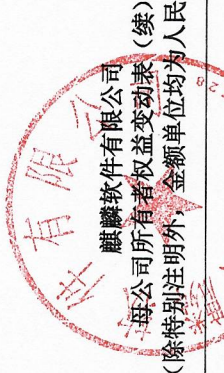 麒麟软件有限公司
母公司所有者权益变动表(续)
(除特别注明外,金额单位均为人民
件有限公
28